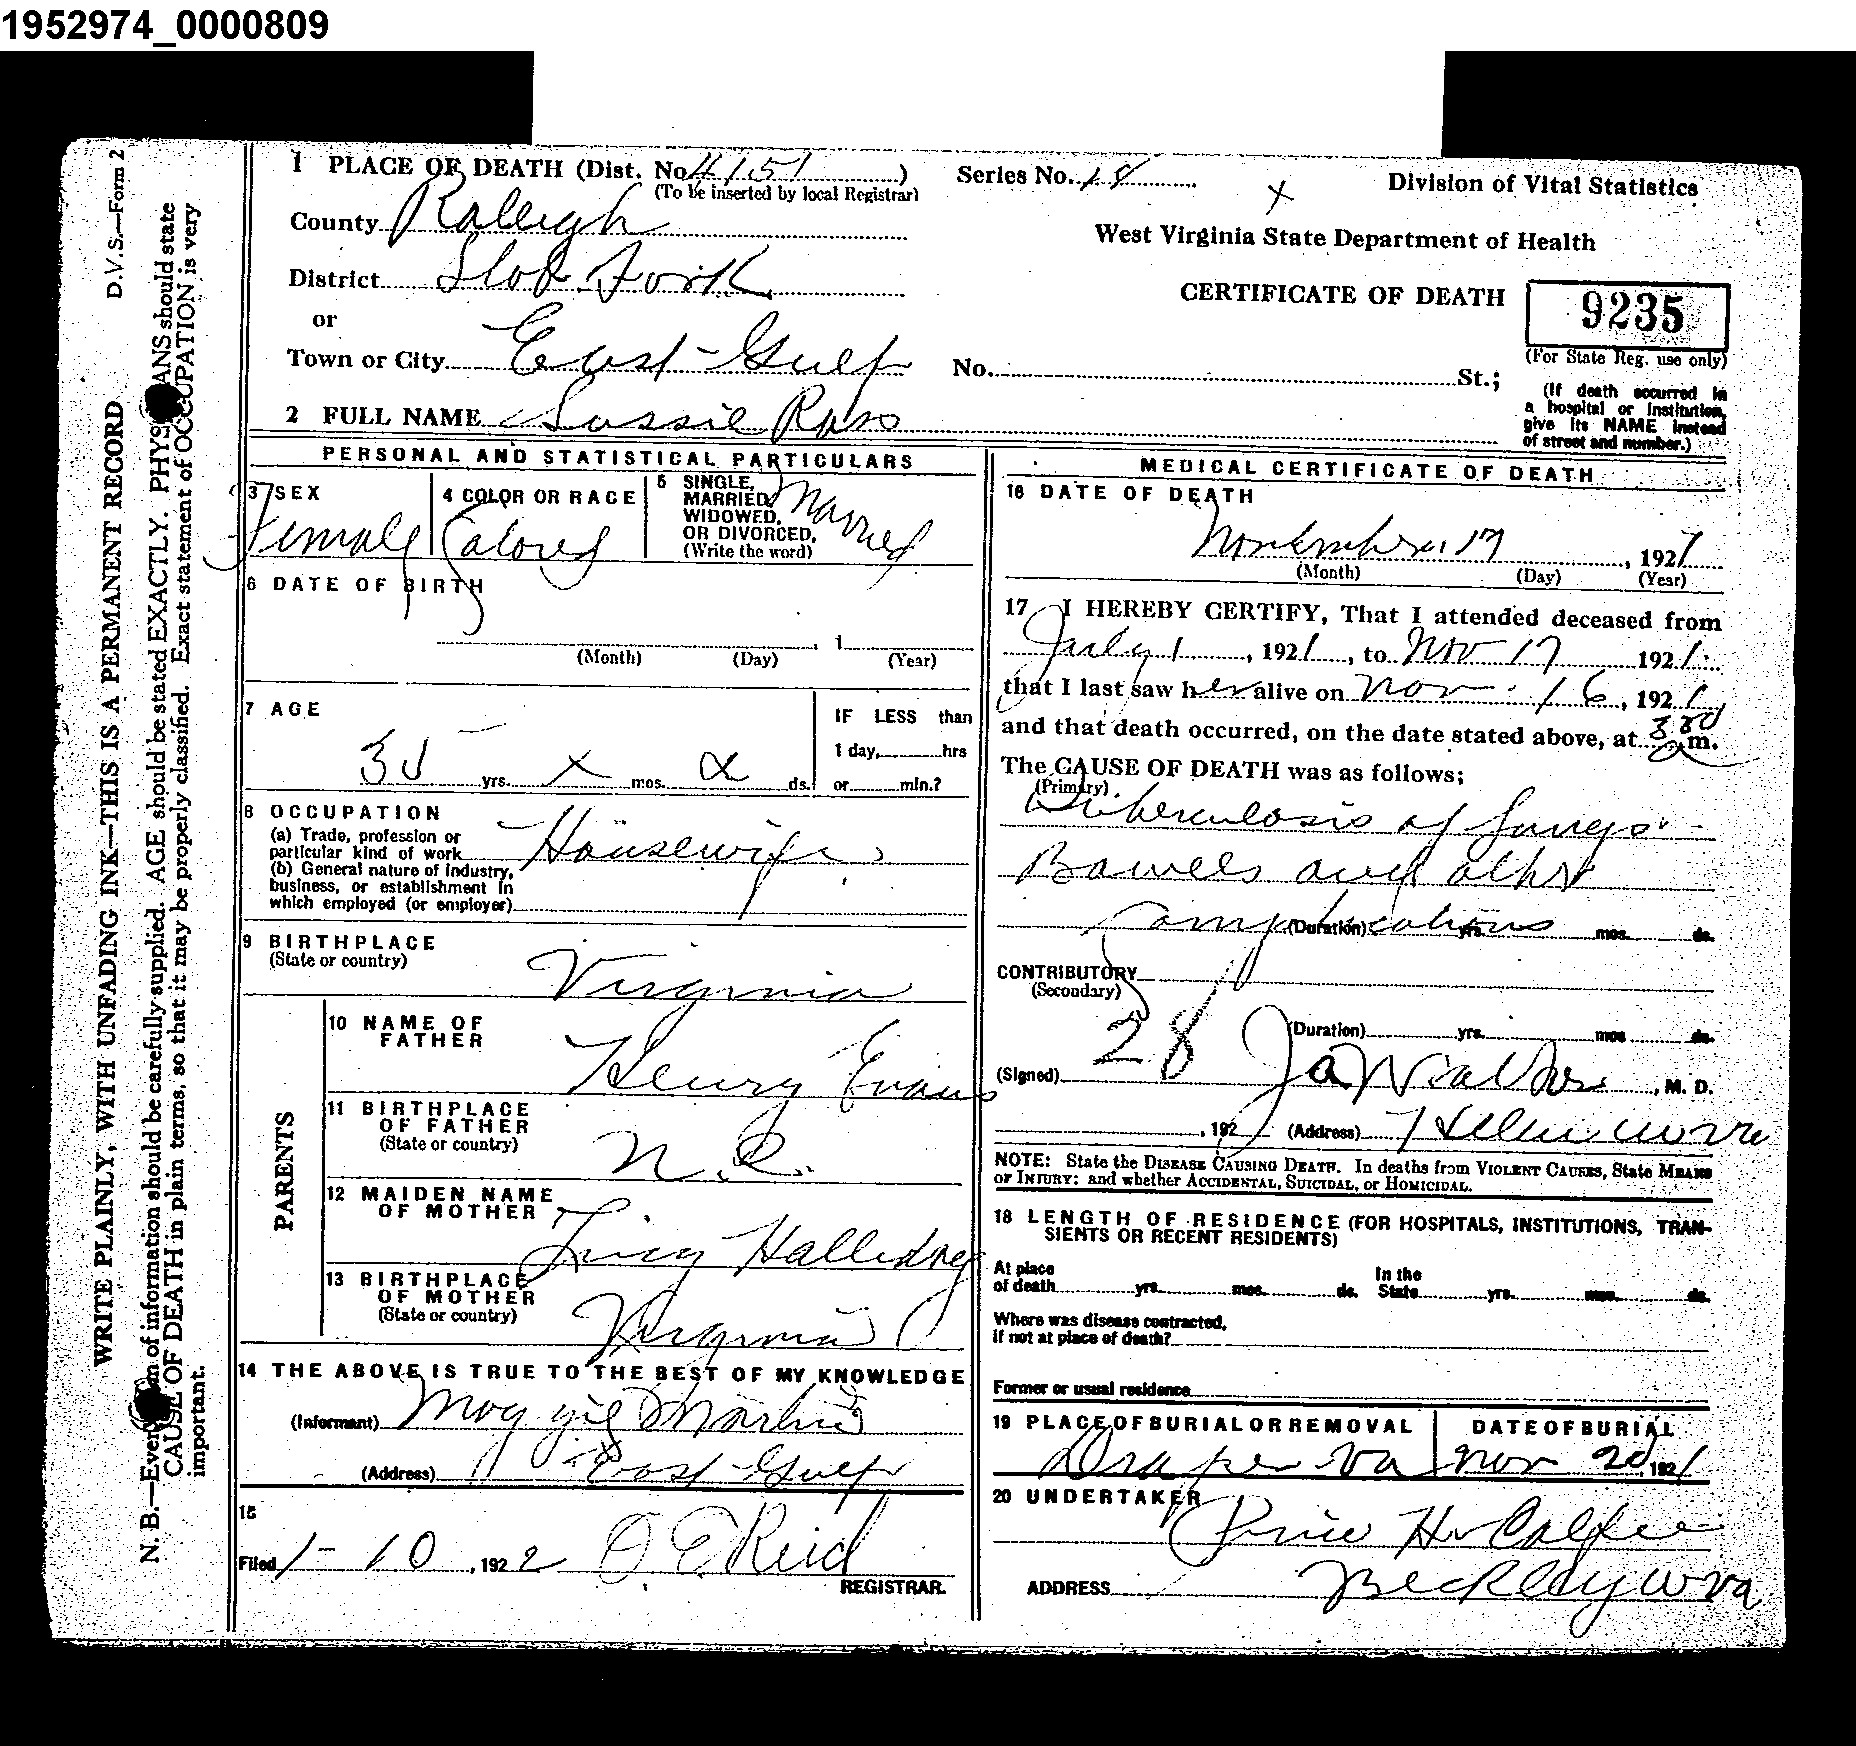 1952974_0000809
D.V.S.—Form 2
WRITE PLAINLY, WITH UNFADING INK—THIS IS A PERMANENT RECORD
N. B.—Every of information should be carefully supplied. AGE should be stated EXACTLY. PHYS ANS should state
CAUSE OF DEATH in plain terms, so that it may be properly classified. Exact statement of OCCUPATION is very
important.
1 PLACE OF DEATH (Dist. No. 4151 ) Series No. 18 x
(To be inserted by local Registrar)
Division of Vital Statistics
County Raleigh
West Virginia State Department of Health
District Slab Fork
CERTIFICATE OF DEATH 9235
or
(For State Reg. use only)
Town or City East Gulf No. St.;
(If death occurred in
a hospital or institution,
give its NAME instead
of street and number.)
2 FULL NAME Sussie Ross
PERSONAL AND STATISTICAL PARTICULARS
3 SEX
Female
4 COLOR OR RACE
Colored
5 SINGLE,
MARRIED,
WIDOWED,
OR DIVORCED,
(Write the word)
Married
6 DATE OF BIRTH
, 1
(Month) (Day) (Year)
7 AGE
35 yrs. x mos. x ds.
IF LESS than
1 day, hrs
or min.?
8 OCCUPATION
(a) Trade, profession or
particular kind of work Housewife
(b) General nature of industry,
business, or establishment in
which employed (or employer)
9 BIRTHPLACE
(State or country)
Virginia
PARENTS
10 NAME OF
FATHER
Henry Evans
11 BIRTHPLACE
OF FATHER
(State or country)
N.C.
12 MAIDEN NAME
OF MOTHER
Lucy
13 BIRTHPLACE
OF MOTHER
(State or country)
Virginia
14 THE ABOVE IS TRUE TO THE BEST OF MY KNOWLEDGE
(Informant) Moggie Martin
(Address) East Gulf
15
Filed 1-10, 1922 O E Reid
REGISTRAR.
MEDICAL CERTIFICATE OF DEATH
16 DATE OF DEATH
November 17, 1921
(Month) (Day) (Year)
17 I HEREBY CERTIFY, That I attended deceased from
July 1, 1921, to Nov 17 1921
that I last saw her alive on Nov. 16, 1921
and that death occurred, on the date stated above, at 3 30 a m.
The CAUSE OF DEATH was as follows;
(Primary)
Tuberculosis of Lungs
Bowels and other
complications
(Duration) yrs. mos. ds.
CONTRIBUTORY
(Secondary)
28
(Duration) yrs. mos ds.
(Signed) , M. D.
, 192 (Address) Helen W Va
NOTE: State the DISEASE CAUSING DEATH. In deaths from VIOLENT CAUSES, State MEANS
OF INJURY; and whether ACCIDENTAL, SUICIDAL, or HOMICIDAL.
18 LENGTH OF RESIDENCE (FOR HOSPITALS, INSTITUTIONS, TRAN-
SIENTS OR RECENT RESIDENTS)
At place
of death yrs. mos. ds.
In the
State yrs. mos. ds.
Where was disease contracted,
if not at place of death?
Former or usual residence
19 PLACE OF BURIAL OR REMOVAL
Draper Va
DATE OF BURIAL
Nov 20, 1921
20 UNDERTAKER
H Calfee
ADDRESS Beckley W Va